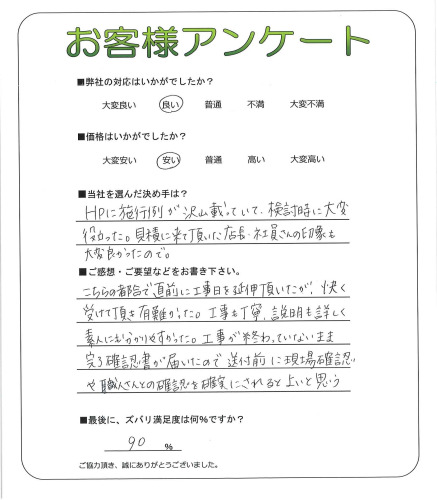 お客様アンケート
■弊社の対応はいかがでしたか？
大変良い 良い 普通 不満 大変不満
■価格はいかがでしたか？
大変安い 安い 普通 高い 大変高い
■当社を選んだ決め手は？
HPに施行例が沢山載っていて、検討時に大変
役立った。見積に来て頂いた店長、社員さんの印象も
大変良かったので。
■ご感想・ご要望などをお書き下さい。
こちらの都合で直前に工事日を延伸頂いたが、快く
受けて頂き有難かった。工事も丁寧、説明も詳しく
素人にも分かりやすかった。工事が終わっていないまま
完了確認書が届いたので送付前に現場確認
や職人さんとの確認を確実にされると良いと思う
■最後に、ズバリ満足度は何％ですか？
90 ％
ご協力頂き、誠にありがとうございました。